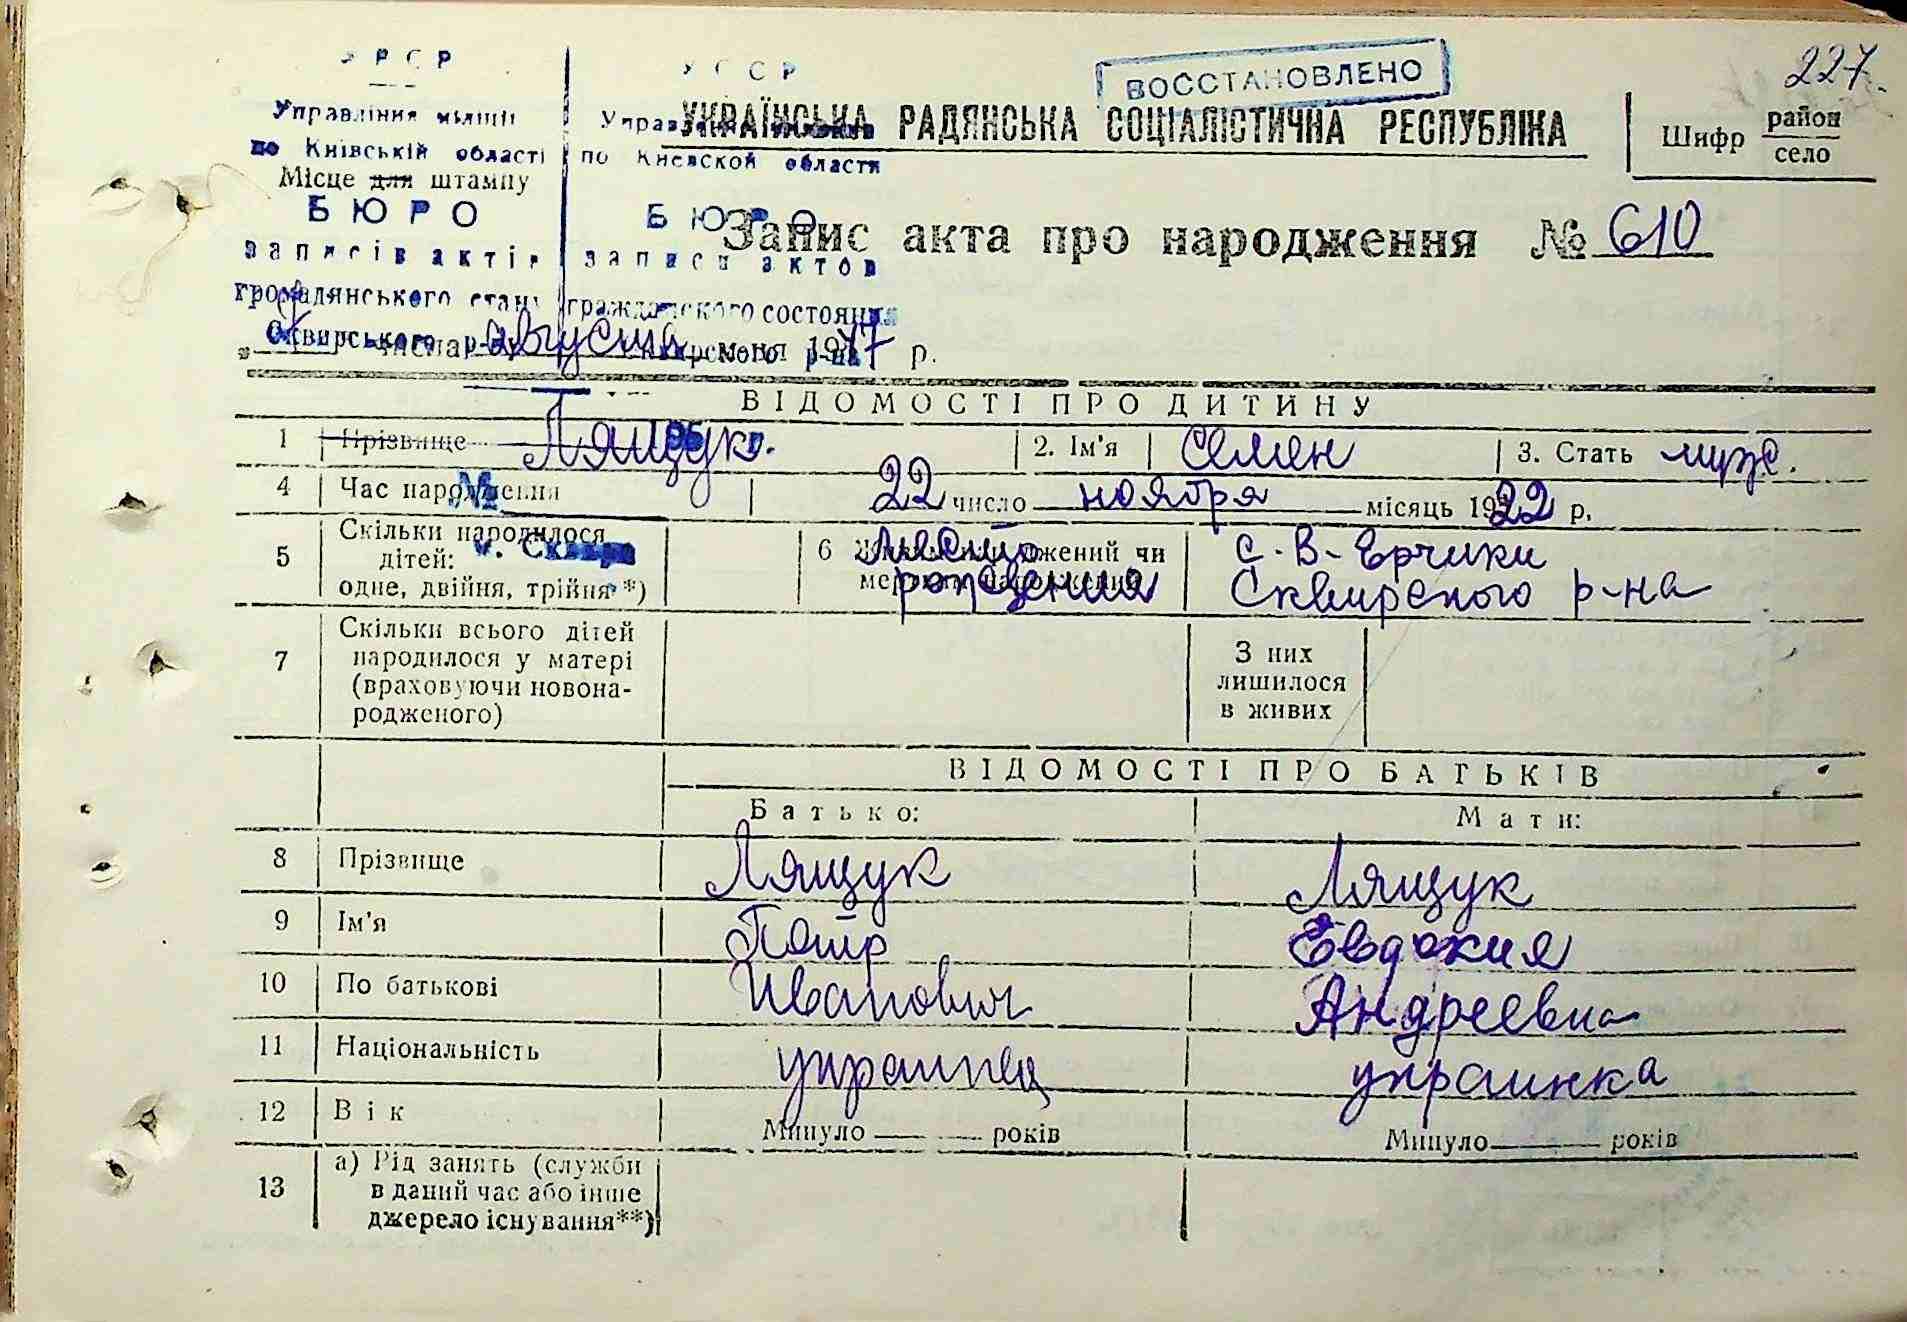 227.
ВОССТАНОВЛЕНО
УРСР
Управління міліції
по Київській області
БЮРО
записів актів
громадянського стану
Сквирського р-ну
УССР
по Киевской области
БЮРО
записи актов
гражданского состояния
Сквирского р-на
№
м. Сквира
УКРАЇНСЬКА РАДЯНСЬКА СОЦІАЛІСТИЧНА РЕСПУБЛІКА
Шифр район
село
Місце для штампу
Запис акта про народження № 610
августа 1947 р.
ВІДОМОСТІ ПРО ДИТИНУ
1 Прізвище Лящук 2. Ім'я Семен 3. Стать муж.
4 Час народження 22 число ноября місяць 1922 р.
5 Скільки народилося
дітей:
одне, двійня, трійня *)
6 Живим народжений чи
мертвим народжений
место
рождения
с. В-Ерчики
Сквирского р-на
7 Скільки всього дітей
народилося у матері
(враховуючи новона-
родженого)
З них
лишилося
в живих
ВІДОМОСТІ ПРО БАТЬКІВ
Батько: Мати:
8 Прізвище Лящук Лящук
9 Ім'я Петр Евдокия
10 По батькові Иванович Андреевна
11 Національність украинец украинка
12 Вік Минуло — — років Минуло — років
13 а) Рід занять (служби
в даний час або інше
джерело існування**)